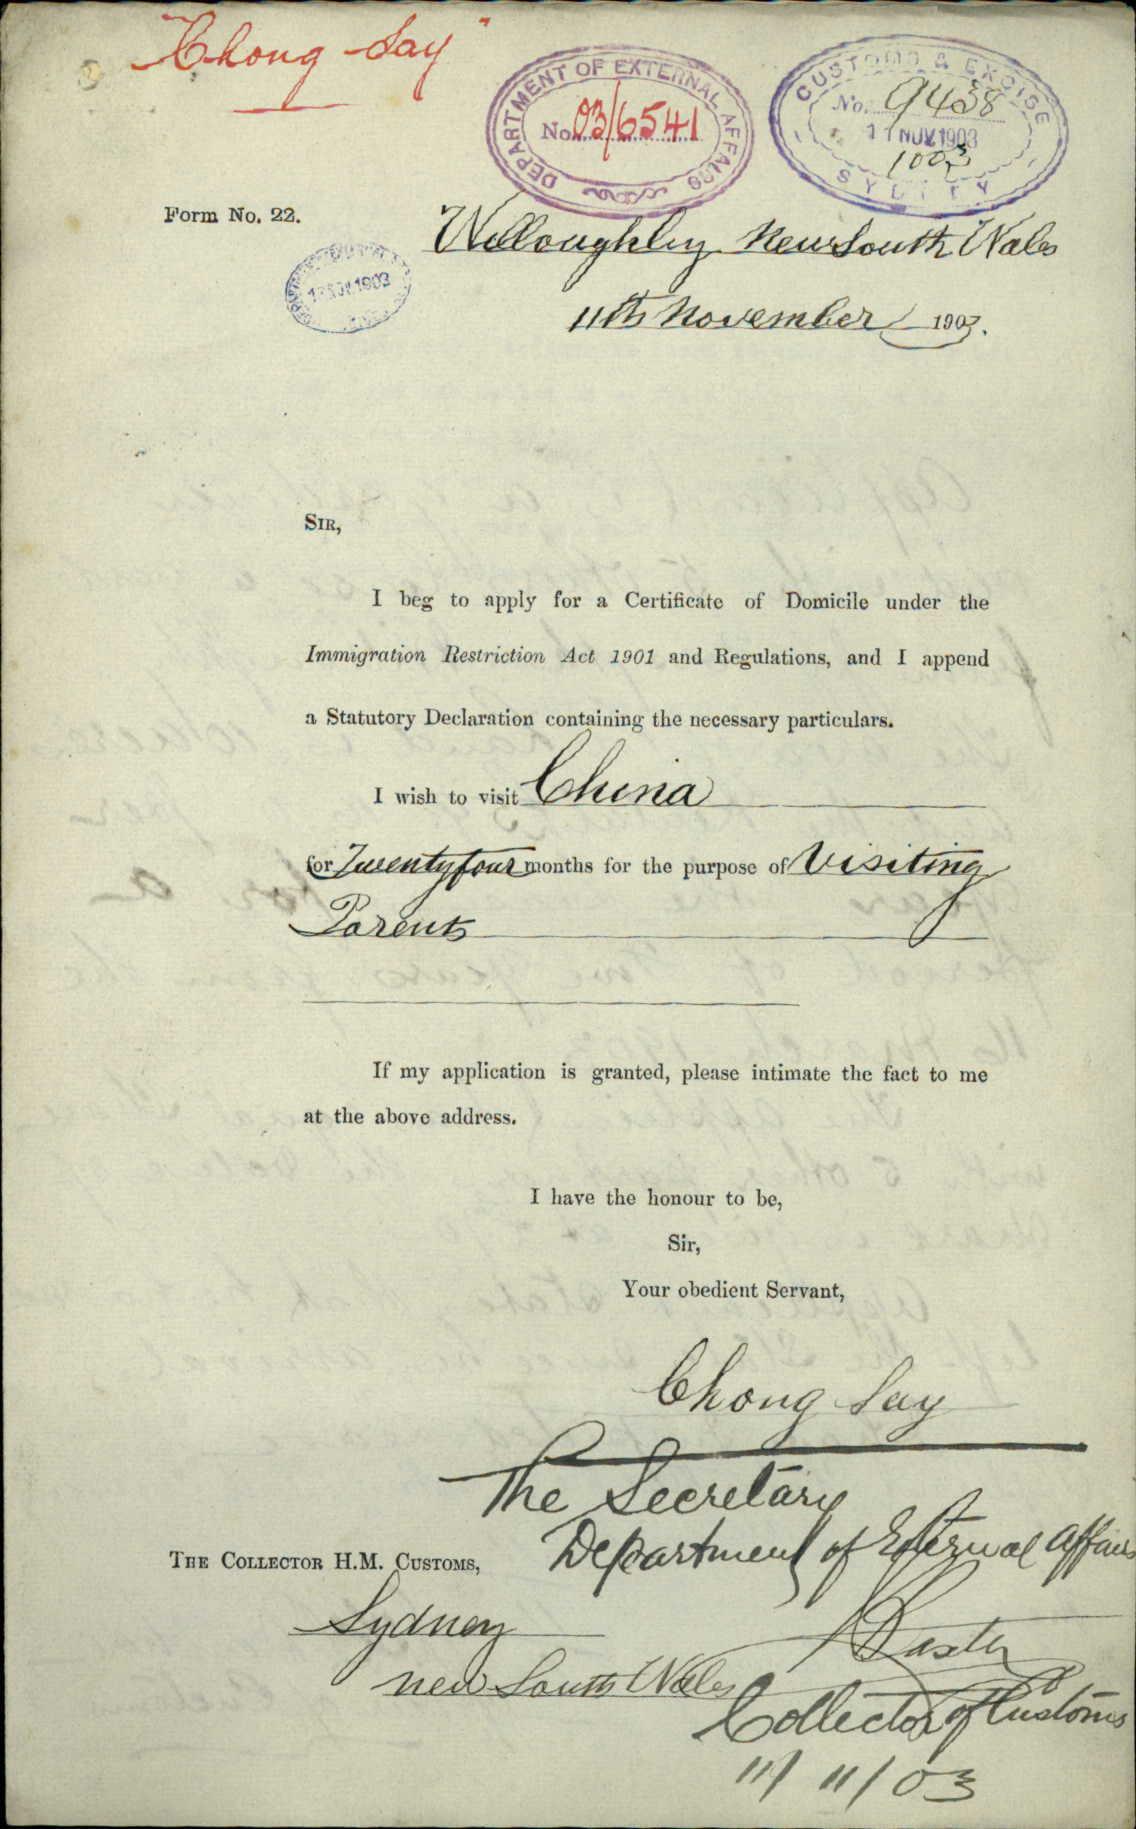 "Chong Say"
DEPARTMENT OF EXTERNAL AFFAIRS
No. 03/6541
CUSTOMS & EXCISE
No. 9438
11 NOV 1903
1003
SYDNEY
Form No. 22.
Willoughby New South Wales
1903
11th November 1903.
SIR,
I beg to apply for a Certificate of Domicile under the
Immigration Restriction Act 1901 and Regulations, and I append
a Statutory Declaration containing the necessary particulars.
I wish to visit China
for Twenty four months for the purpose of Visiting
Parents
If my application is granted, please intimate the fact to me
at the above address.
I have the honour to be,
Sir,
Your obedient Servant,
Chong Say
The Secretary
Department of External Affairs
THE COLLECTOR H.M. CUSTOMS,
Sydney
New South Wales
Baxter
Collector of Customs
11/11/03